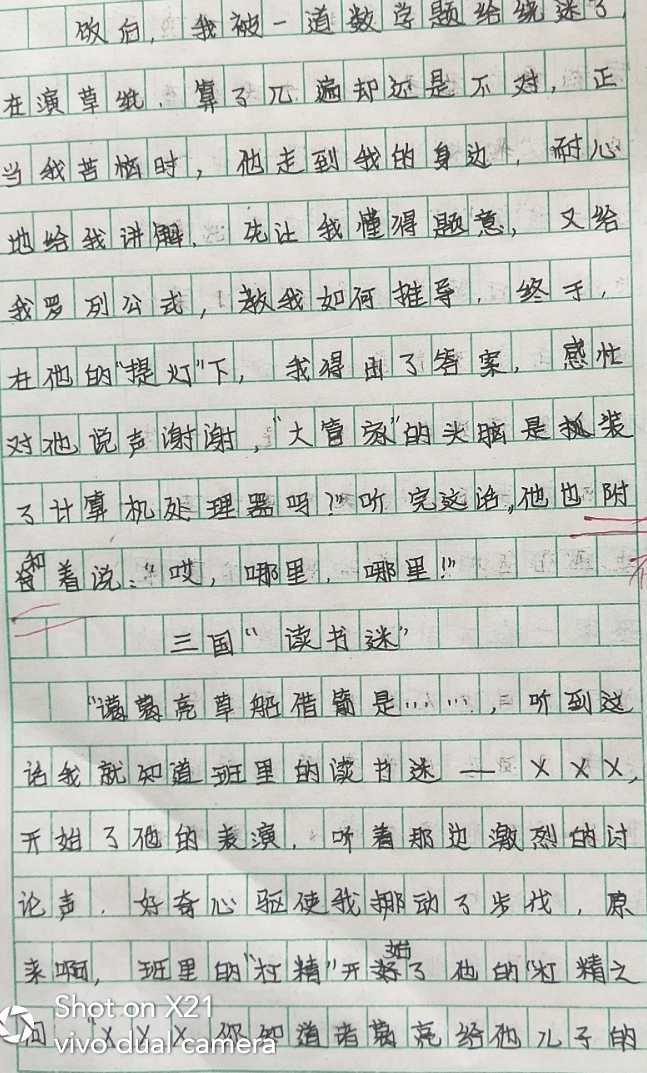 饭后，我被一道数学题给绕迷了，
在演草纸，算了几遍却还是不对，正
当我苦恼时，他走到我的身边，耐心
地给我讲解，先让我懂得题意，又给
我罗列公式，教我如何推导，终于，
在他的“提灯”下，我得出了答案，感忙
对他说声谢谢，“大管家”的头脑是抓装
了计算机处理器吗？”听完这话，他也附
和着说：“哎，哪里，哪里！”
三国“读书迷”
“诸葛亮草船借箭是……，听到这
话我就知道班里的读书迷——XXX，
开始了他的表演，听着那边激烈的讨
论声，好奇心驱使我挪动了步伐，原
来啊，班里的“杠精”开始了他的“杠精之
问“XXX你知道诸葛亮给他儿子的
Shot on X21
vivo dual camera